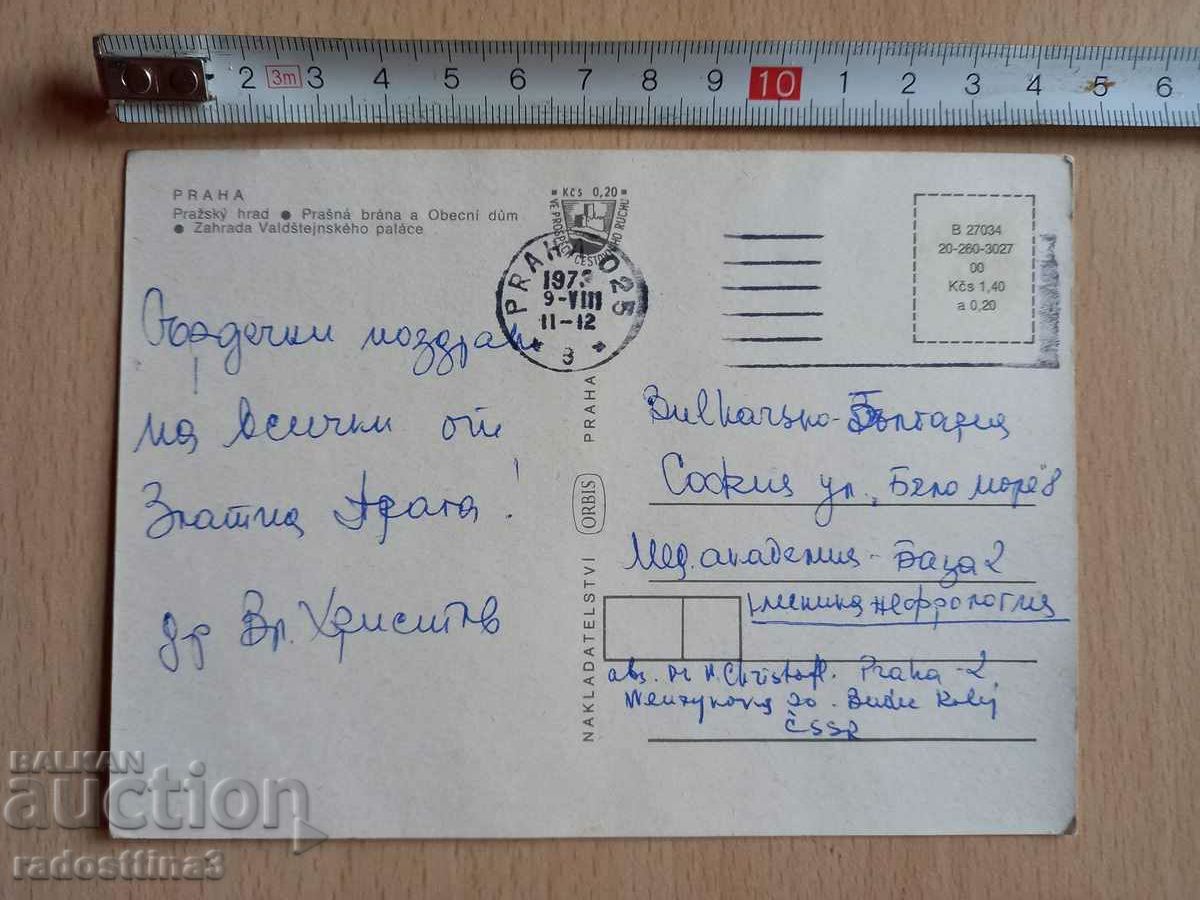 2 3m 3 4 5 6 7 8 9 10 1 2 3 4 5 6
PRAHA
Pražský hrad ● Prašná brána a Obecní dům
● Zahrada Valdštejnského paláce
Kčs 0,20
VE PROSPĚCH CESTOVNÍHO RUCHU
PRAHA 025
1973
9-VIII
11-12
3
B 27034
20-280-3027
00
Kčs 1,40
a 0,20
Сърдечни поздрави
на всички от
Златна Прага!
др Вл. Христов
NAKLADATELSTVÍ ORBIS PRAHA
Bulharsko-България
София ул. Бяло море 8
Мед. академия - База 2
клиника нефрология
abs. Dr Christoff. Praha-2,
20.
ČSSR
BALKAN
auction
radosttina3